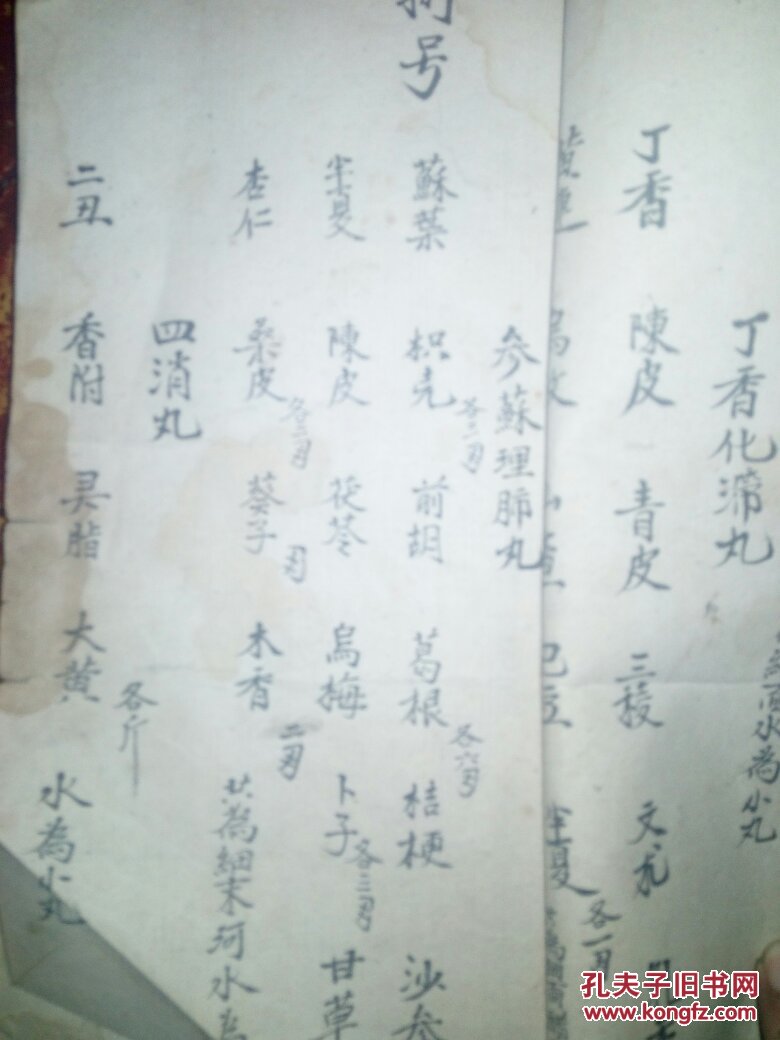 丁香化滞丸
丁香 陳皮 青皮 三稜 文朮
水為小丸
半夏 各一刄
号
参蘇理肺丸
蘇葉 枳壳 各二刄 前胡 葛根 各六刄 桔梗 沙参
半夏 陳皮 茯苓 烏梅 卜子 各三刄 甘草
杏仁 桑皮 各二刄 葵子 刄 木香 二刄 共為細末河水為
四消丸
二丑 香附 灵脂 大黄 各斤 水為小丸
孔夫子旧书网
www.kongfz.com